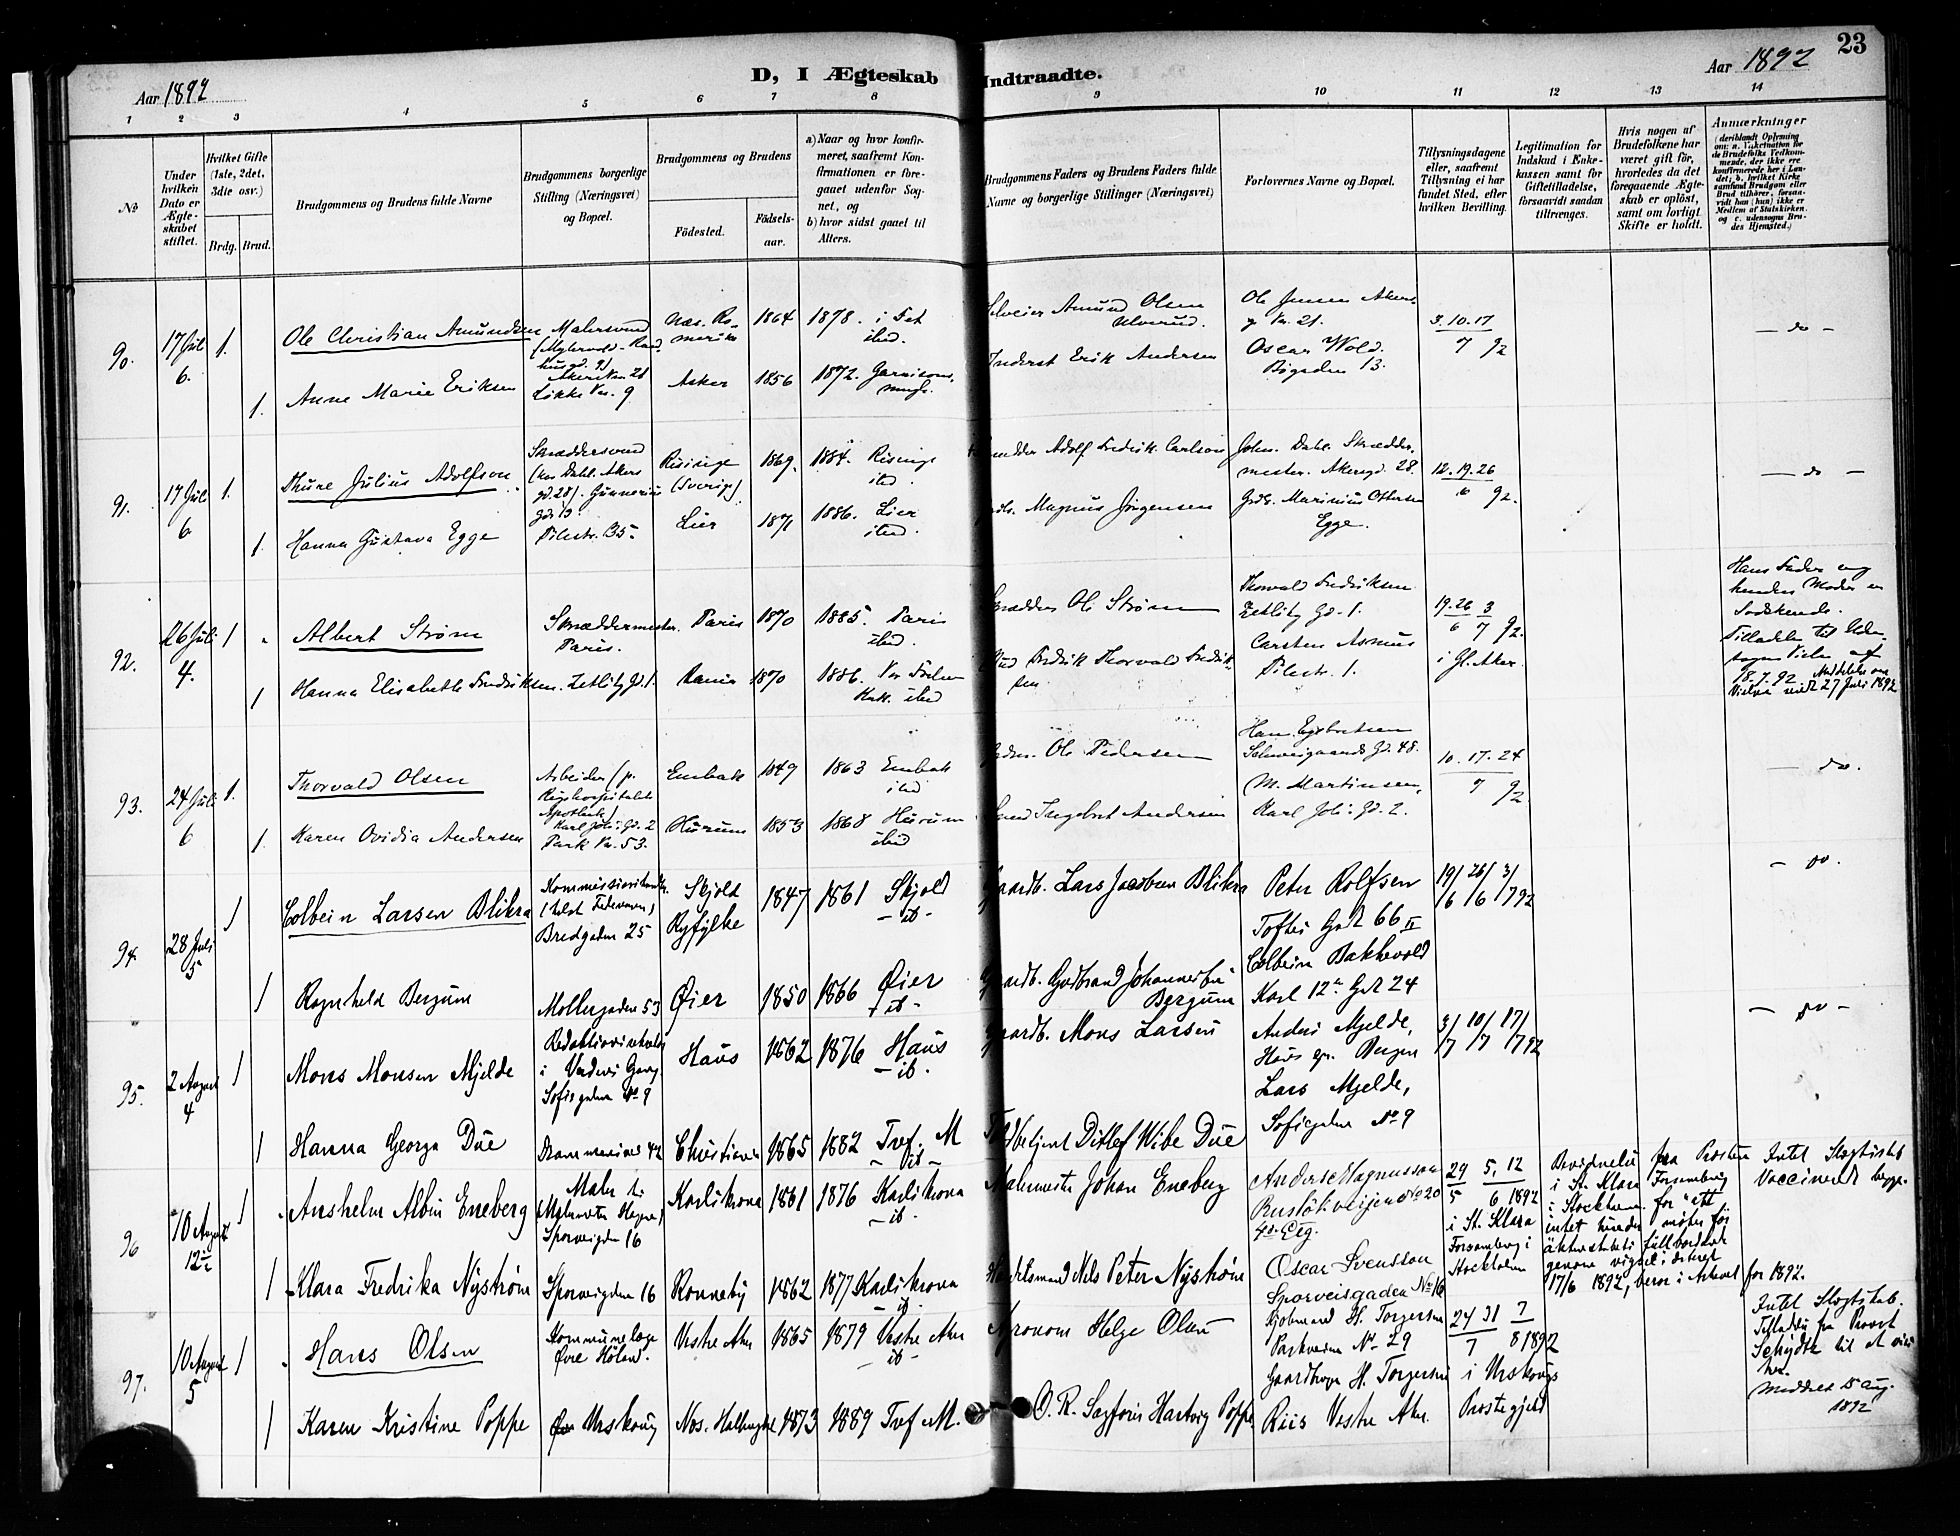 23
Aar 1892
D, I Ægteskab Indtraadte.
Aar 1892
1 2 3 4 5 6 7 8 9 10 11 12 13 14
No
Under hvilken Dato er Ægteskabet stiftet.
Hvilket Gifte (1ste, 2det, 3dte osv.)
Brdg. Brud.
Brudgommens og Brudens fulde Navne
Brudgommens borgerlige Stilling (Næringsvei) og Bopæl.
Brudgommens og Brudens
Fødested.
Fødsels-aar.
a) Naar og hvor konfirmeret, saafremt Konfirmationen er foregaaet udenfor Sognet, og
b) hvor sidst gaaet til Alters.
Brudgommens Faders og Brudens Faders fulde Navne og borgerlige Stillinger (Næringsvei)
Forlovernes Navne og Bopæl.
Tillysningsdagene eller, saafremt Tillysning ei har fundet Sted, efter hvilken Bevilling.
Legitimation for Indskud i Enkekassen samt for Giftetilladelse, forsaavidt saadan tiltrænges.
Hvis nogen af Brudefolkene har været gift før, hvorledes da det foregaaende Ægteskab er opløst, samt om lovligt Skifte er holdt.
Anmærkninger
(deriblandt Oplysning om: a. Vakcination for de Brudefolks Vedkommende, der ikke ere konfirmerede her i Landet; b. hvilket Kirkesamfund Brudgom eller Brud tilhører, forsaavidt han (hun) ikke er Medlem af Statskirken, og c. udensogns Brudes Hjemsted.)
90. 17 Jul 6. 1.
Ole Christian Amundsen
Malersvend
Akersvn 21
Næs. Romerike 1864 1878. i Fet ibd.
Amund Olsen Ulverud.
Ole Jensen Akersv. 21.
3. 10. 17 / 7 92
— do —
1. Anne Marie Eriksen
Løkke Vn. 9
Asker 1856 1872. Garnisons
Inderst Erik Andersen
Oscar Wold.
Bygaden 13.
91. 17 Jul 6 1.
Thure Julius Adolfson
Skræddersvend
(hos Dahl. Akersgd. 28). Gunneriusgd.
Risinge (Sverige) 1869. 1884. Risinge ibd.
Adolf Fredrik Carlson
John. Dahl. Skræddermester. Akersgd. 28.
12. 19. 26 / 6 92.
— do —
1. Hanna Gustava Egge
Pilestr. 35.
Lier 1871 1886. Lier ibd.
Magnus Jørgensen
Grdb. Marinius Ottersen Egge.
92. 26 Juli 4. 1
Albert Strøm
Skræddermester. Paris.
Paris 1870 1885. Paris ibid.
Skrædder Ole Strøm
Thorvald Fredriksen
Zetlitz Gd. 1.
19. 26 3 / 6 7 92.
i Gl. Aker.
Hans Fader og hendes Moder er Sødskende.
Tilladelse til Udensogns Vielse af 18.7.92 Meddelelse om Vielse sendt 27 Juli 1892
1 Hanna Elisabeth Fredriksen. Zetlitz Gd. 1.
1870 1886.
Fredrik Thorvald Fredriksen
Carsten Asmus
Pilestr. 1.
93. 24 Juli 6 1.
Thorvald Olsen
Arbeider (p. Rigshospitalets Apothek) Karl Joh: Gd. 2
Enebak 1849 1863 Enebak ibd
Ole Pedersen
Hans Engebretsen
Schweigaards Gd. 48.
10. 17. 24 / 7 92
— do.
1. Karen Ovidia Andersen
Park Vn. 53.
Hurum 1853 1868 Hurum ibid
Ingebret Andersen
M. Martinsen,
Karl Joh: Gd. 2.
94. 28 Juli 5 1
Colbein Larsen Blikra
Bredgaden 25
Skjold Ryfylke 1847 1861 Skjold — ib —
Gaardb. Lars Jacobsen Blikra
Peter Rolfsen
Toftes Gd. 66 II
19/6 26/6 3/7 92
— do.
1 Ragnhild Bergum
Møllergaden 53
Øier 1850 1866 Øier — ib —
Gaardb. Gudbrand Johannesen Bergum
Colbein Bakkevold
Karl 12te Gd. 24
95. 2 August 4 1
Mons Monsen Mjelde
Redaktionssekretær i Verdens Gang
Sofiegaden No 9
Haus 1862 1876 Haus — ib.
Gaardb. Mons Larsen
Anders Mjelde,
Haus pr. Bergen
3/7 10/7 17/7 92
— do —
1 Hanna Georga Due
Drammensveien 42
Christiania 1865 1882 Tref. M — ib —
Ditlef Wibe Due
Lars Mjelde,
Sofiegaden No 9
96 10 August 12 1
Anshelm Albin Eneberg
Maler
Sporveigden 16
Karlskrona 1861 1876 Karlskrona — ib
Malermester Johan Eneberg
Anders Magnusson
Rusløkveien No 20
4de Etg.
29 5. 12 / 5 6 1892
i St. Klara Forsamling i Stockholm
Bevidnelse fra Prosten i St. Klara Forsamling i Stockholm for "att intet hinder möter för äktenskapets fullbordande genom vigsel", dateret 17/6 1892, beror i Arkivet for 1892.
Intet Slægtskab
Vaccinerede begge.
1 Klara Fredrika Nystrøm
Sporveigden 16
Ronneby 1862 1877 Karlskrona — ib.
Handelsmand Nels Peter Nystrøm
Oscar Svensson
Sporveisgaden No 16
97. 10 August 5 1
Hans Olsen
Kommunelæge
Øvre Høland.
Vestre Aker 1865 1879 Vestre Aker — ib —
Agronom Helge Olsen
Kjøbmand H. Torgersen
Parkveien No 29
24 31 7 / 7 8 1892
i Urskougs Prestegjeld
Intet Slægtskab.
Tilladelse fra Provst Schydtz til at vies her.
Meddelt 15 Aug. 1892
1 Karen Kristine Poppe
Urskoug
Nes. Hallingdal 1873 1889 Tref M.
O. R. Sagfører Hartvig Poppe.
Gaardbruger H. Torgersen
Riis Vestre Aker.